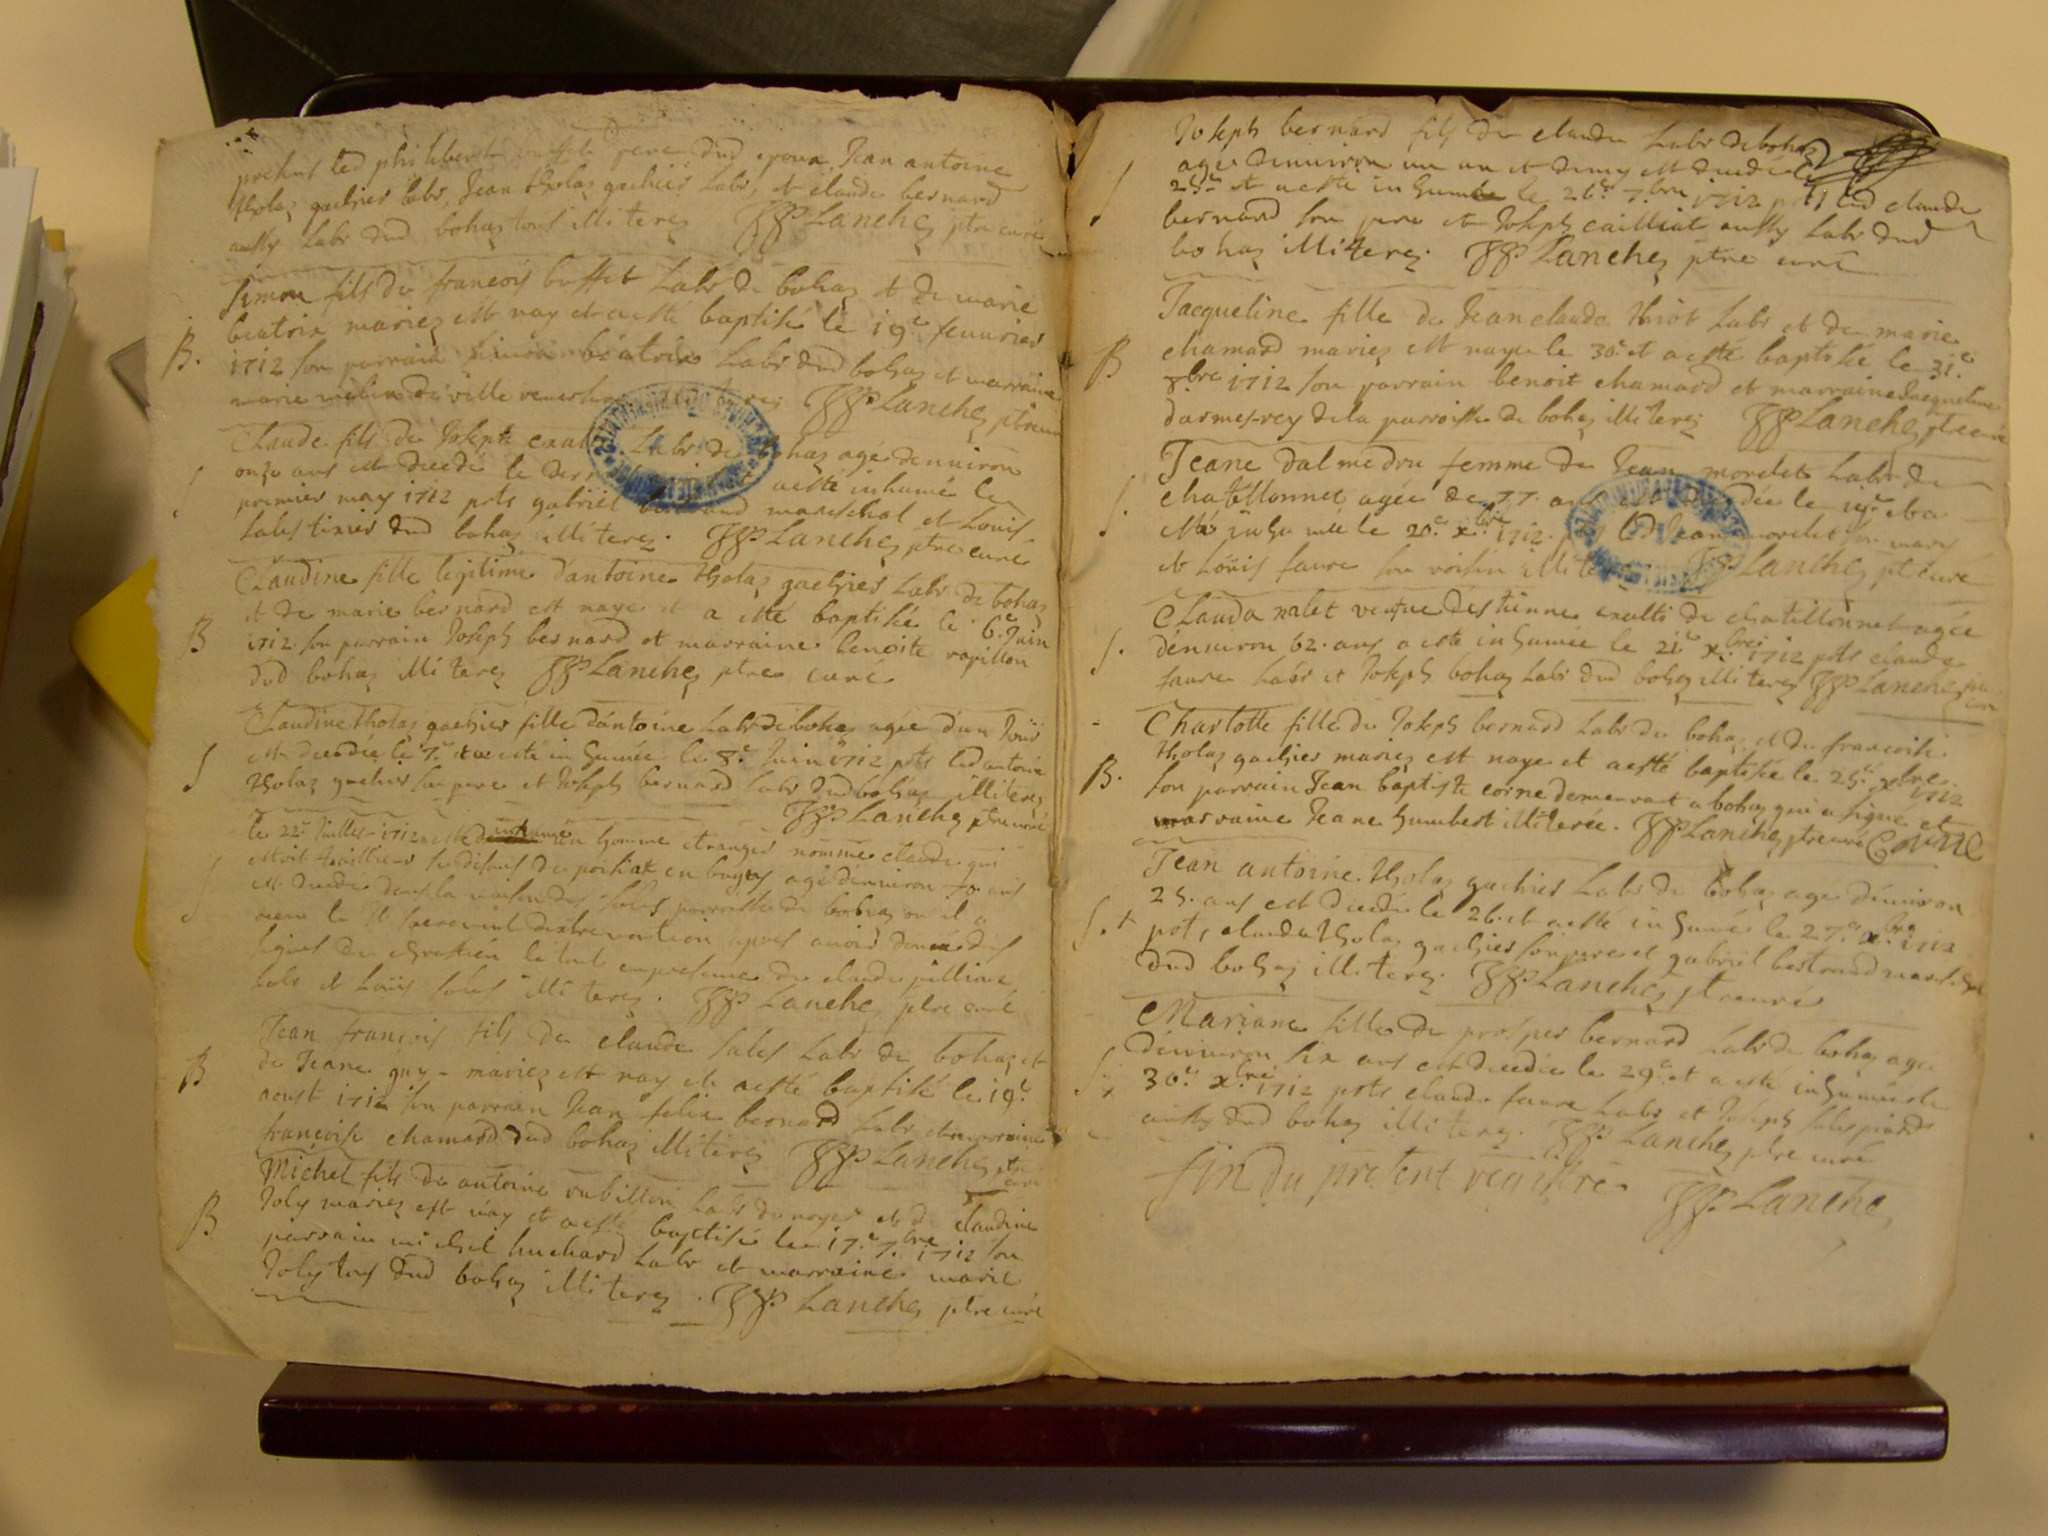 presens led philibert buffet pere dud epoux, Jean antoine
tholaz gachier labr, Jean tholaz gachier labr, et claude bernard
aussy labr dud bohaz tous illiterez JJP Lanchez ptre curé
Simon fils de francois buffet labr de bohaz et de marie
B. beatrix mariez est nay et aesté baptisé le 19e feuurier
1712 son parrain simon beatrix labr dud bohaz et marraine
marie melin de ville reuersure illiterez JJP Lanchez ptre
Claude fils de Joseph labr de bohaz agé denuiron
S onze ans est decedé le aesté inhumé le
premier may 1712 pnts gabriel bertrand mareschal et Louis
sales tixier dud bohaz illiterez. JJP Lanchez ptre curé
Claudine fille legitime dantoine tholaz gachier labr de bohaz
et de marie bernard est naye et a esté baptisée le 6e Juin
B 1712 son parrain Joseph bernard et marraine benoite rapillon
dud bohaz illiterez JJP Lanchez ptre curé
Claudine tholaz gachier fille dantoine labr de bohaz agée dun Jour
S est decedée le 7e et aesté inhumée le 8e Juin 1712 pnts led antoine
tholaz gachier son pere et Joseph bernard labr dud bohaz illiterez
JJP Lanchez ptre curé
le 22e Juillet 1712 aesté inhumé un homme etranger nommé claude qui
S estoit tailleur se disant de en bugey agé denuiron 70 ans
est decedé dans la maison des sales parroisse de bohaz ou il a
receu le St sacrement dextremonction apres auoir donné des
signes de chrestien le tout en presence de claude
labr et Loüis sales illiterez. JJP Lanchez ptre curé
Jean francois fils de claude sales labr de bohaz et
B de Jeane guy mariez est nay et aesté baptisé le 19e
aoust 1712 son parrain Jean felix bernard labr et marraine
françoise chamard dud bohaz illiterez JJP Lanchez ptre curé
Michel fils de antoine rubillon labr du noyer et de claudine
B Joly mariez est nay et aesté baptisé le 17e 7bre 1712 son
parrain michel huchard labr et marraine marie
Joly tous dud bohaz illiterez. JJP Lanchez ptre curé
Joseph bernard fils de claude labr de bohaz
S agé denuiron un an et demy est decedé le
25e et aesté inhumé le 26e 7bre 1712 pnts led claude
bernard son pere et Joseph cailliat aussy labr dud
bohaz illiterez. JJP Lanchez ptre curé
Jacqueline fille de Jean claude thiot labr et de marie
B chamard mariez est naye le 30e et aesté baptisée le 31e
8bre 1712 son parrain benoit chamard et marraine Jacqueline
darmes-rey de la parroisse de bohaz illiterez JJP Lanchez ptre curé
Jeane dalmedru femme de Jean morelet labr de
S. chatillonnet agée de 77. ans est decedée le 19e et a
esté inhumée le 20e xbre 1712. pnts led Jean morelet son mary
et Loüis faure son voisin illiterez JJP Lanchez ptre curé
Clauda nalet veufue destienne exalti de chatillonnet agée
S. denuiron 62. ans a esté inhumée le 21e xbre 1712 pnts claude
faure labr et Joseph bohaz labr dud bohaz illiterez JJP Lanchez ptre curé
Charlotte fille de Joseph bernard labr de bohaz et de francoise
tholaz gachier mariez est naye et aesté baptisée le 25e xbre 1712
B. son parrain Jean baptiste corne demeurant a bohaz qui a signé et
marraine Jeane humbert illiterée. JJP Lanchez ptre curé Corne
Jean antoine tholaz gachier labr de bohaz agé denuiron
25. ans est decedé le 26. et aesté inhumé le 27e xbre 1712
S. + pnts, claude tholaz gachier son pere et gabriel bertrand mareschal
dud bohaz illiterez. JJP Lanchez ptre curé
Mariane fille de prosper bernard labr de bohaz agée
S denuiron six ans est decedée le 29e et a esté inhumée le
+ 30e xbre 1712 pnts claude faure labr et Joseph sales
aussy dud bohaz illiterez. JJP Lanchez ptre curé
fin du present registre. JJP Lanchez